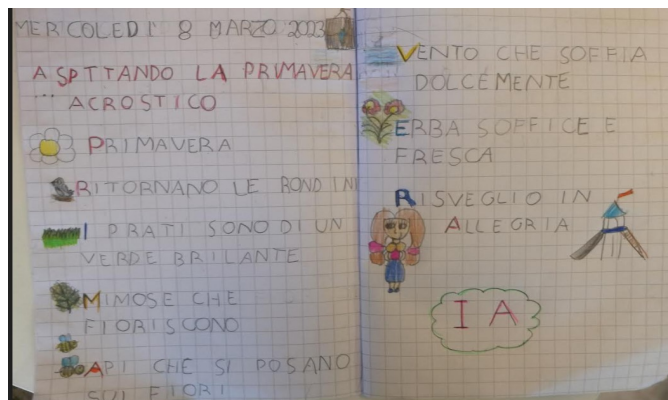 MERCOLEDI' 8 MARZO 2023
ASPTTANDO LA PRIMAVERA
... ACROSTICO
PRIMAVERA
RITORNANO LE RONDINI
I PRATI SONO DI UN
VERDE BRILANTE
MIMOSE CHE
FIORISCONO
API CHE SI POSANO
SUI FIORI
VENTO CHE SOFFIA
DOLCEMENTE
ERBA SOFFICE E
FRESCA
RISVEGLIO IN
ALLEGRIA
I A